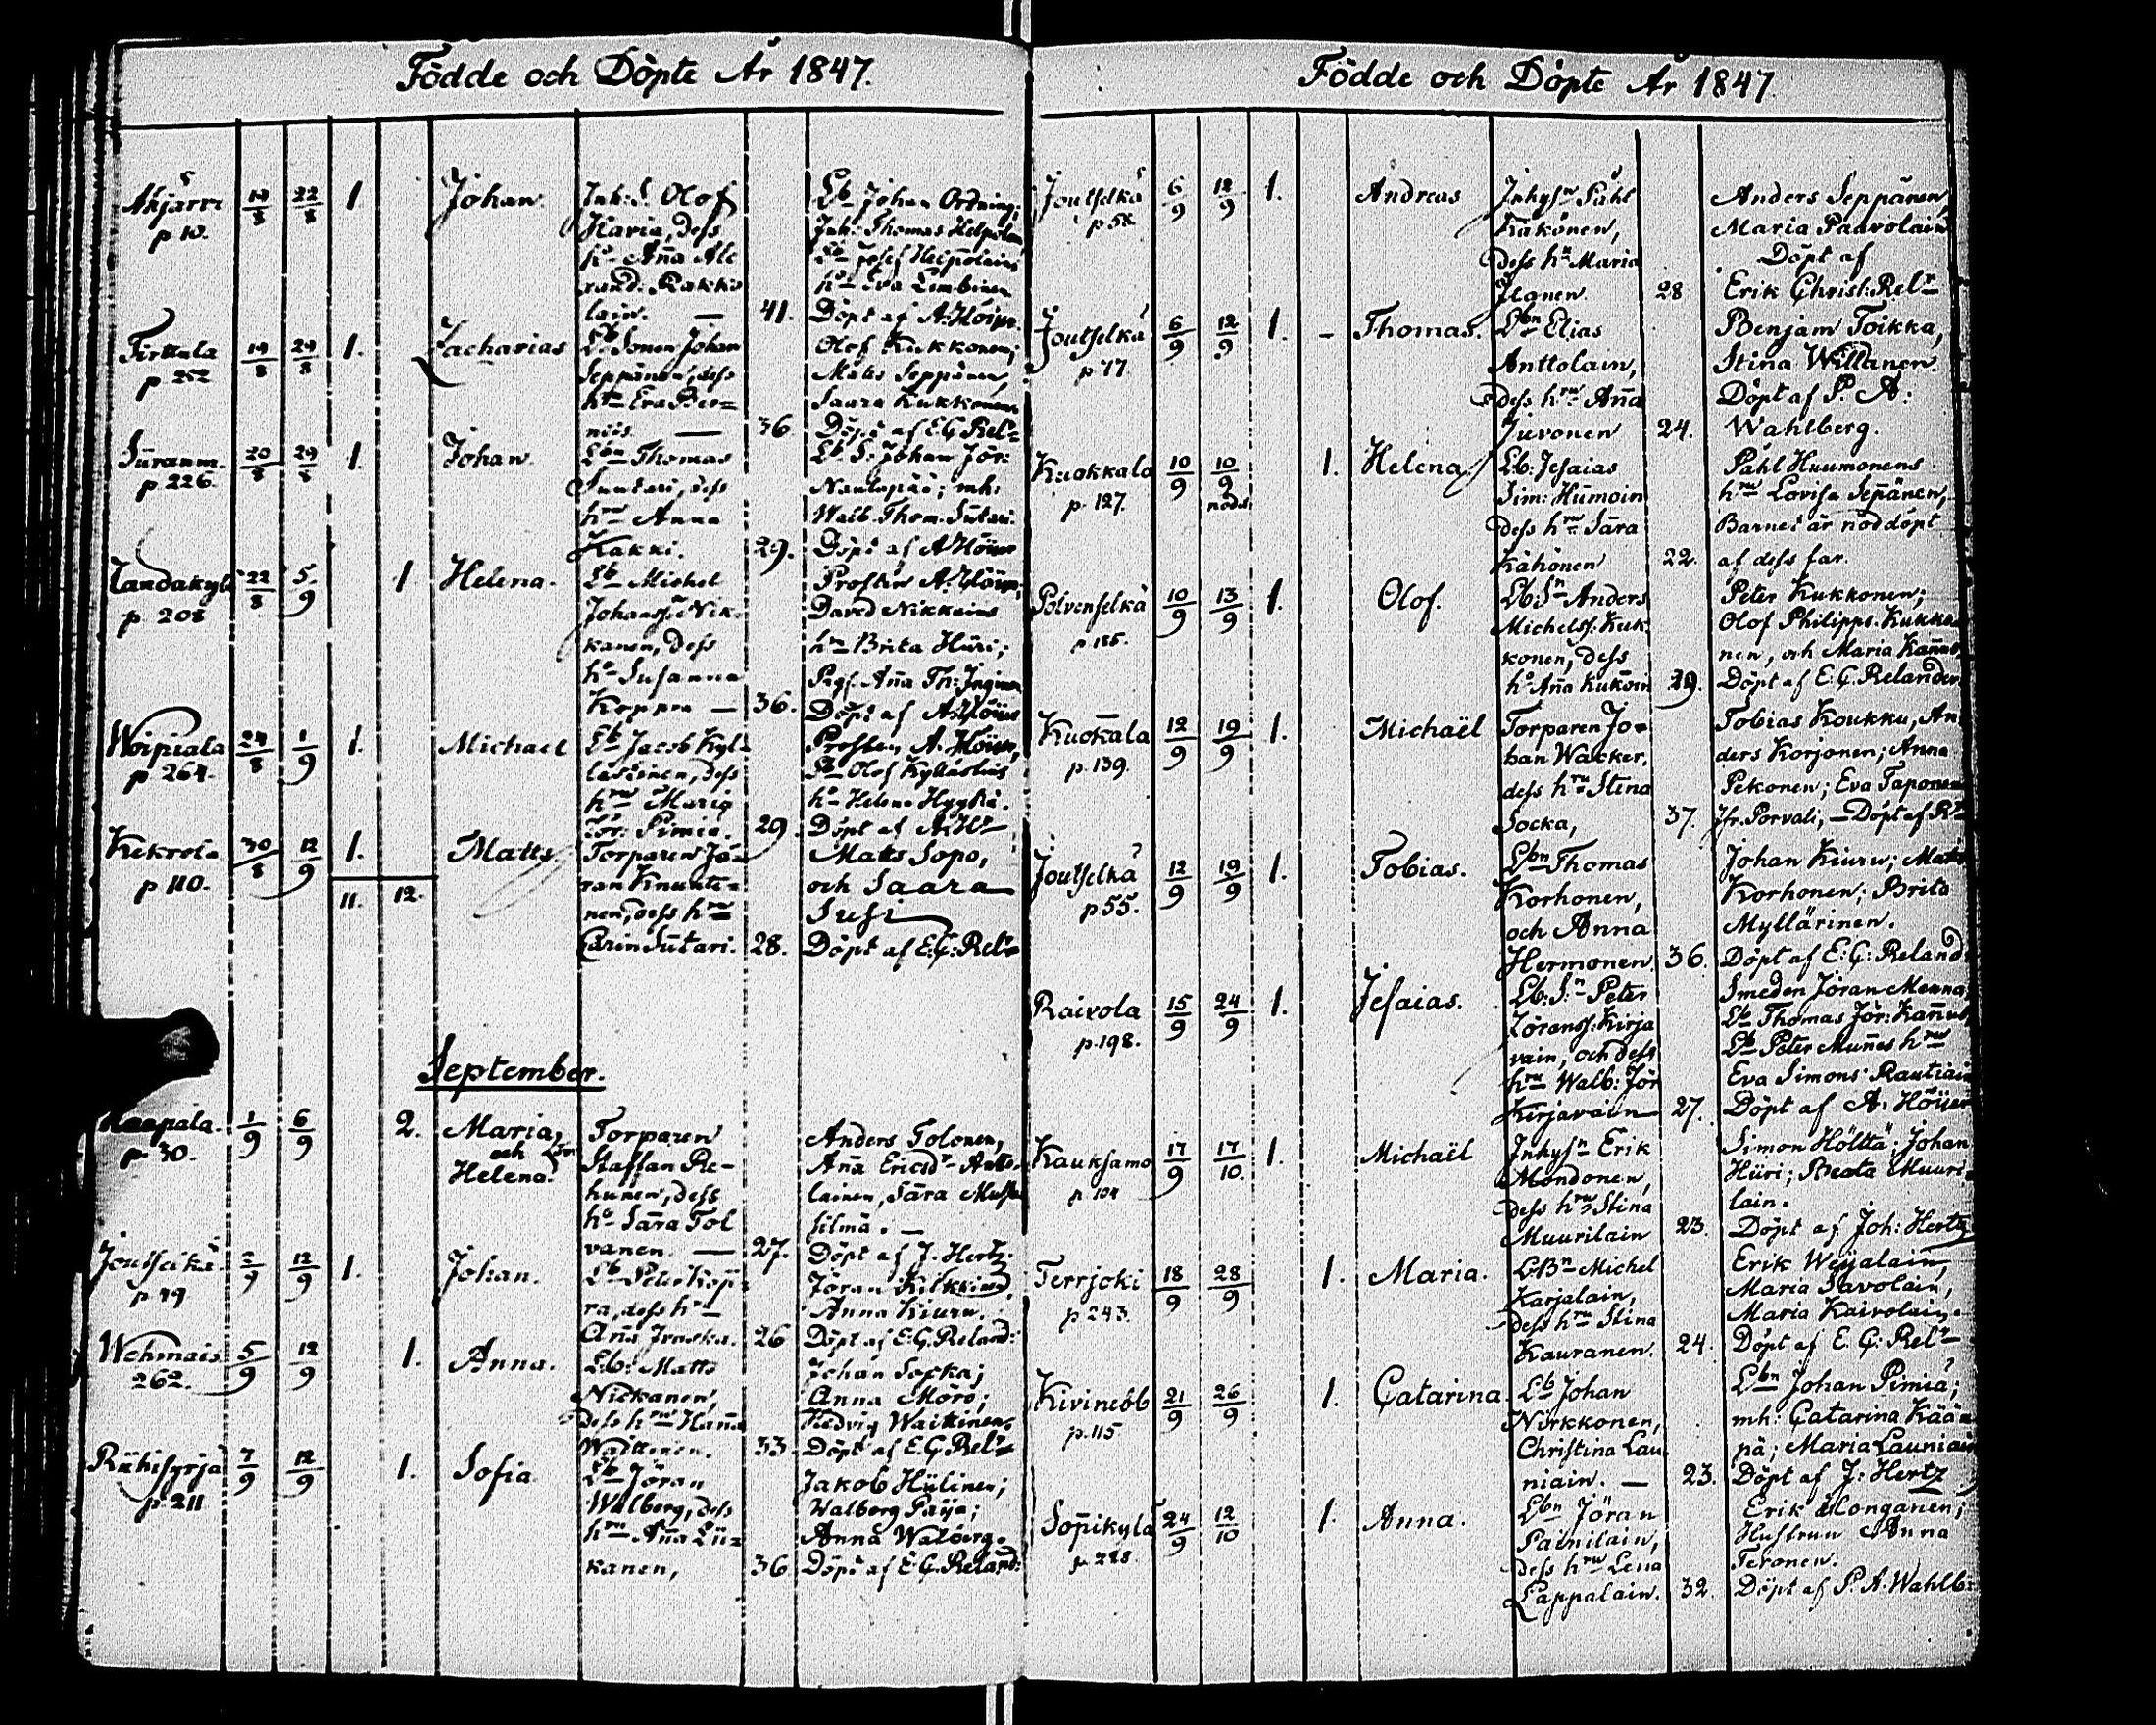 Födde och Döpte År 1847.
p 10.
19/8 22/8 1.
Johan
Inh: S. Olof
Maria, dess
hu Anna Ale
xand: Rakko
lain. — 41.
Lb Johan Ordning;
Inh: Thomas
Lb Josef
hu Eva Lembinen
Döpt af A. Höijer.
Tirttula
p 252
19/8 29/8 1.
Zacharias
Lb Sonen Johan
Seppänen, dess
hru Eva Ber=
niös. — 36.
Olof Kukkonen;
Matts Seppänen,
Saara Kukkonen
Döpt af E.G. Relr
p. 226.
20/8 29/8 1.
Johan.
Lbn Thomas
Suutari, dess
hru Anna
Kakki. 29.
Lb. S: Johan Jör:
Nautapää; mh:
Walb. Thom. Sutari.
Döpt af A. Höijer
Zandakylä
p 208
22/8 5/9 1
Helena.
Lb Michel
Johanss: Nik-
kanen, dess
hu Susanna
Koppra — 36.
Prostin A. Höijer,
David Nikkains
hu Brita Hüri;
Pigs. Anna Th: Inginen
Döpt af A. Höijer
Woipiala
p 264.
24/8 1/9 1.
Michael
Lb Jacob Kyl-
läst­inen, dess
hru Maria
Tör: Pimiä. 29.
Prosten A. Höijer,
Lb Olof Kylläst­ins
hu Helena Hyytiä.
Döpt af A. Hr
Kekrola
p 110.
30/8 12/9 1.
Matts
Torparen Jö-
ran Knuuti-
nen, dess hru
Carin Sutari. 28.
Matts Sopo,
och Saara
Susi
Döpt af E.G: Relr
11. 12.
September.
Haapala.
p 30.
1/9 6/9 2.
Maria,
och
Helena.
Torparen
Staffan Pe-
hunen, dess
hu Sara Tol
vanen. — 27.
Anders Tolonen,
Anna Ericsdr Antto-
lainen, Sara Musta
silmä. —
Döpt af J. Hertz.
Joutselkä
p 49
2/9 12/9 1.
Johan.
Lb Peter Kop-
ra, dess hr
Anna Jraska. 26
Jöran Kilkkinen,
Anna Kiuru.
Döpt af E.G. Reland:
Wehmais
262.
5/9 12/9 1.
Anna.
Lb: Matts
Nickanen,
dess hru Hanna
Waittinen. 33.
Johan Socka;
Anna Möro;
Hedvig Waittinen
Döpt af E.G. Relr
Riihisyrjä
p 211
7/9 12/9 1.
Sofia
Lb Jöran
Walberg, dess
hru Anna Lii=
kanen, 36
Jakob Hülinen;
Walborg Paija;
Anna Walberg.
Döpt af E.G. Reland:
Födde och Döpte År 1847.
Joutselkä
p 58.
6/9 12/9 1.
Andreas
Inhysn Påhl
Käkönen,
dess hu Maria
Ilanen. 28
Anders Seppänen,
Maria Paavolain
Döpt af
Erik Christ: Relr
Joutselkä
p 77.
6/9 12/9 1. -
Thomas.
Lbn Elias
Anttolain,
dess hru Anna
Juvonen 24.
Benjam Toikka,
Stina Willanen.
Döpt af P. A:
Wahlberg.
Kuokkala
p. 127.
10/9 10/9 nödd. 1.
Helena
Lb: Jesaias
Sim: Humoin
dess hru Sara
Kähönen 22.
Påhl Huumonens
hru Lovisa Sepänen,
Barnet är nöddöpt
af dess far.
Polvenselkä
p 185.
10/9 13/9 1.
Olof.
Lb Sn Anders
Michelss: Kuk
konen, dess
hu Anna Kukoin 29.
Peter Kukkonen;
Olof Philipps. Kukko
nen, och Maria Kannus
Döpt af E.G. Relander
Kuokala
p. 139.
12/9 19/9 1.
Michaël
Torparen Jo-
han Wacker.
dess hru Stina
Socka, 37.
Tobias Koukku, An
ders Korjonen; Anna
Pekonen; Eva Taponen
Jfr. Porvali, — Döpt af Rr
Joutselkä
p 55.
12/9 19/9 1.
Tobias.
Lbn Thomas
Korhonen,
och Anna
Hermonen. 36.
Johan Kiuru; Matts
Korhonen; Brita
Myllärinen.
Döpt af E:G: Reland
Raivola
p. 198.
15/9 24/9 1.
Jesaias.
Lb: Sn Peter
Jöranss: Kirja
vain, och dess
hru Walb: Jör
Kirjavain 27.
Smeden Jöran Menna,
Lb Thomas Jör: Kannus,
Lb Peter Munnes hru
Eva Simons Rautiain
Döpt af A. Höijer
Kauksamo
p 104
17/9 17/10. 1.
Michaël
Inhysn Erik
Mondonen,
dess hru Stina
Muurilain 23.
Simon Hölttä: Johan
Hüri; Beata Muuri-
lain.
Döpt af Joh: Hertz
Terrjoki
p 243.
18/9 28/9 1.
Maria.
LBn Michel
Karjalain,
dess hru Stina
Kauranen. 24.
Erik Weijalain,
Maria Savolain,
Maria Kaivolain.
Döpt af E.G: Relr
Kivinebb
p. 115
21/9 26/9 1.
Catarina
Lb Johan
Nirkkonen,
Christina Lau
niain. — 23.
Lbn Johan Pimiä;
mh: Catarina Kään
pä; Maria Launiain
Döpt af J: Hertz
Sopikylä
p. 228.
24/9 12/10 1.
Anna.
Lbn Jöran
Painilain,
dess hru Lena
Lappalain. 32.
Erik Monganen;
Hustrun Anna
Teronen.
Döpt af P. A. Wahlb: